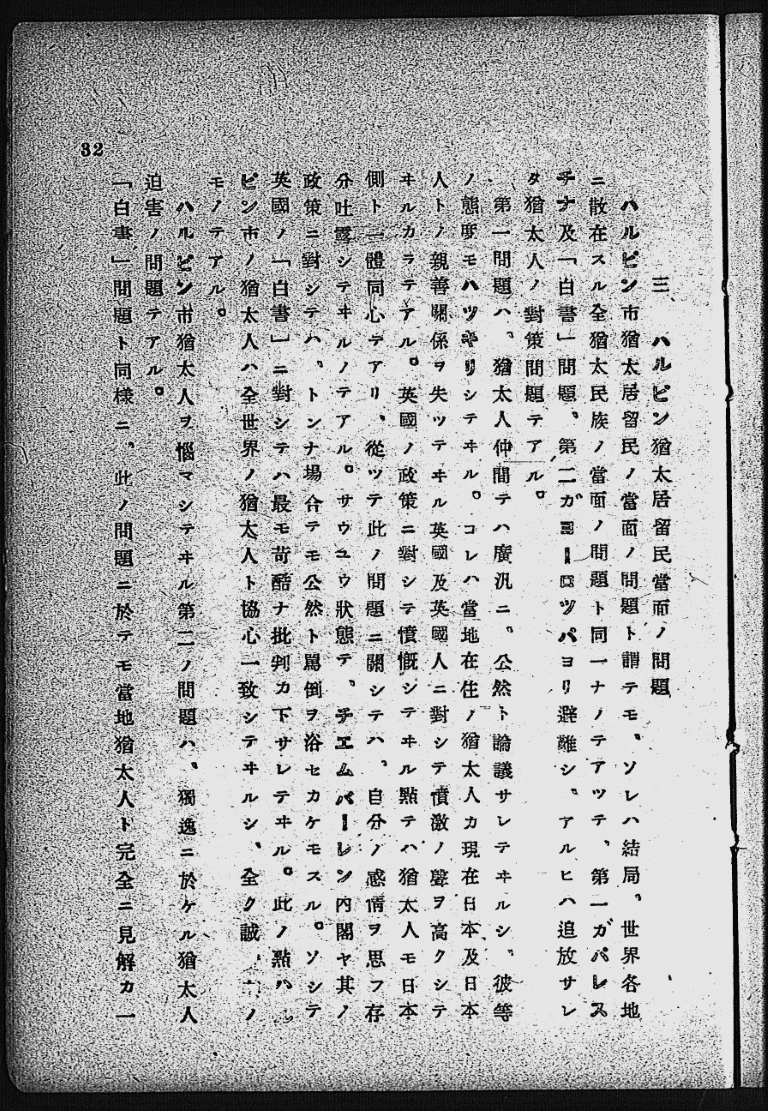 三　ハルピン猶太居留民當面ノ問題
ハルピン市猶太居留民ノ當面ノ問題ト謂テモ、ソレハ結局、世界各地
ニ散在スル全猶太民族ノ當面ノ問題ト同一ナノテアツテ、第一ガパレス
チナ及「白書」問題、第二ガヨーロツパヨリ避難シ、アルヒハ追放サレ
タ猶太人ノ對策問題テアル。
第一問題ハ、猶太人仲間テハ廣汎ニ、公然ト論議サレテヰルシ、彼等
ノ態度モハツキリシテヰル。コレハ當地在住ノ猶太人カ現在日本及日本
人トノ親善關係ヲ失ツテヰル英國及英國人ニ對シテ憤激ノ聲ヲ高クシテ
ヰルカラテアル。英國ノ政策ニ對シテ憤慨シテヰル點テハ猶太人モ日本
側ト一體同心テアリ、從ツテ此ノ問題ニ關シテハ、自分ノ感情ヲ思フ存
分吐露シテヰルノテアル。サウユウ狀態テ、チエムバーレン內閣ヤ其ノ
政策ニ對シテハ、トンナ場合テモ公然ト罵倒ヲ浴セカケモスル。ソシテ
英國ノ「白書」ニ對シテハ最モ苛酷ナ批判カ下サレテヰル。此ノ點ハ
ピン市ノ猶太人ハ全世界ノ猶太人ト協心一致シテヰルシ、全ク誠一ノ
モノテアル。
ハルピン市猶太人ヲ惱マシテヰル第二ノ問題ハ、獨逸ニ於ケル猶太人
迫害ノ問題テアル。
「白書」問題ト同樣ニ、此ノ問題ニ於テモ當地猶太人ト完全ニ見解カ一
32